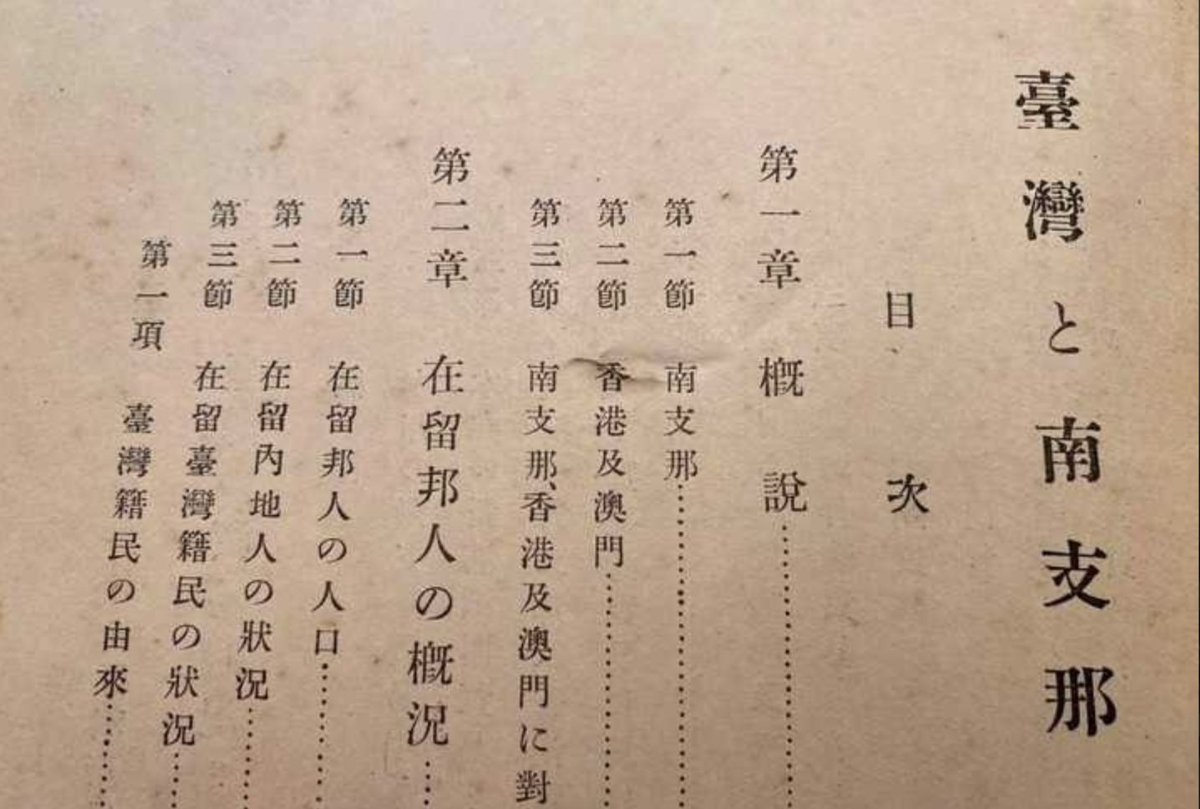 臺灣と南支那
目次
第一章 概說
第一節 南支那
第二節 香港及澳門
第三節 南支那、香港及澳門に對
第二章 在留邦人の概況
第一節 在留邦人の人口
第二節 在留內地人の狀況
第三節 在留臺灣籍民の狀況
第一項 臺灣籍民の由來